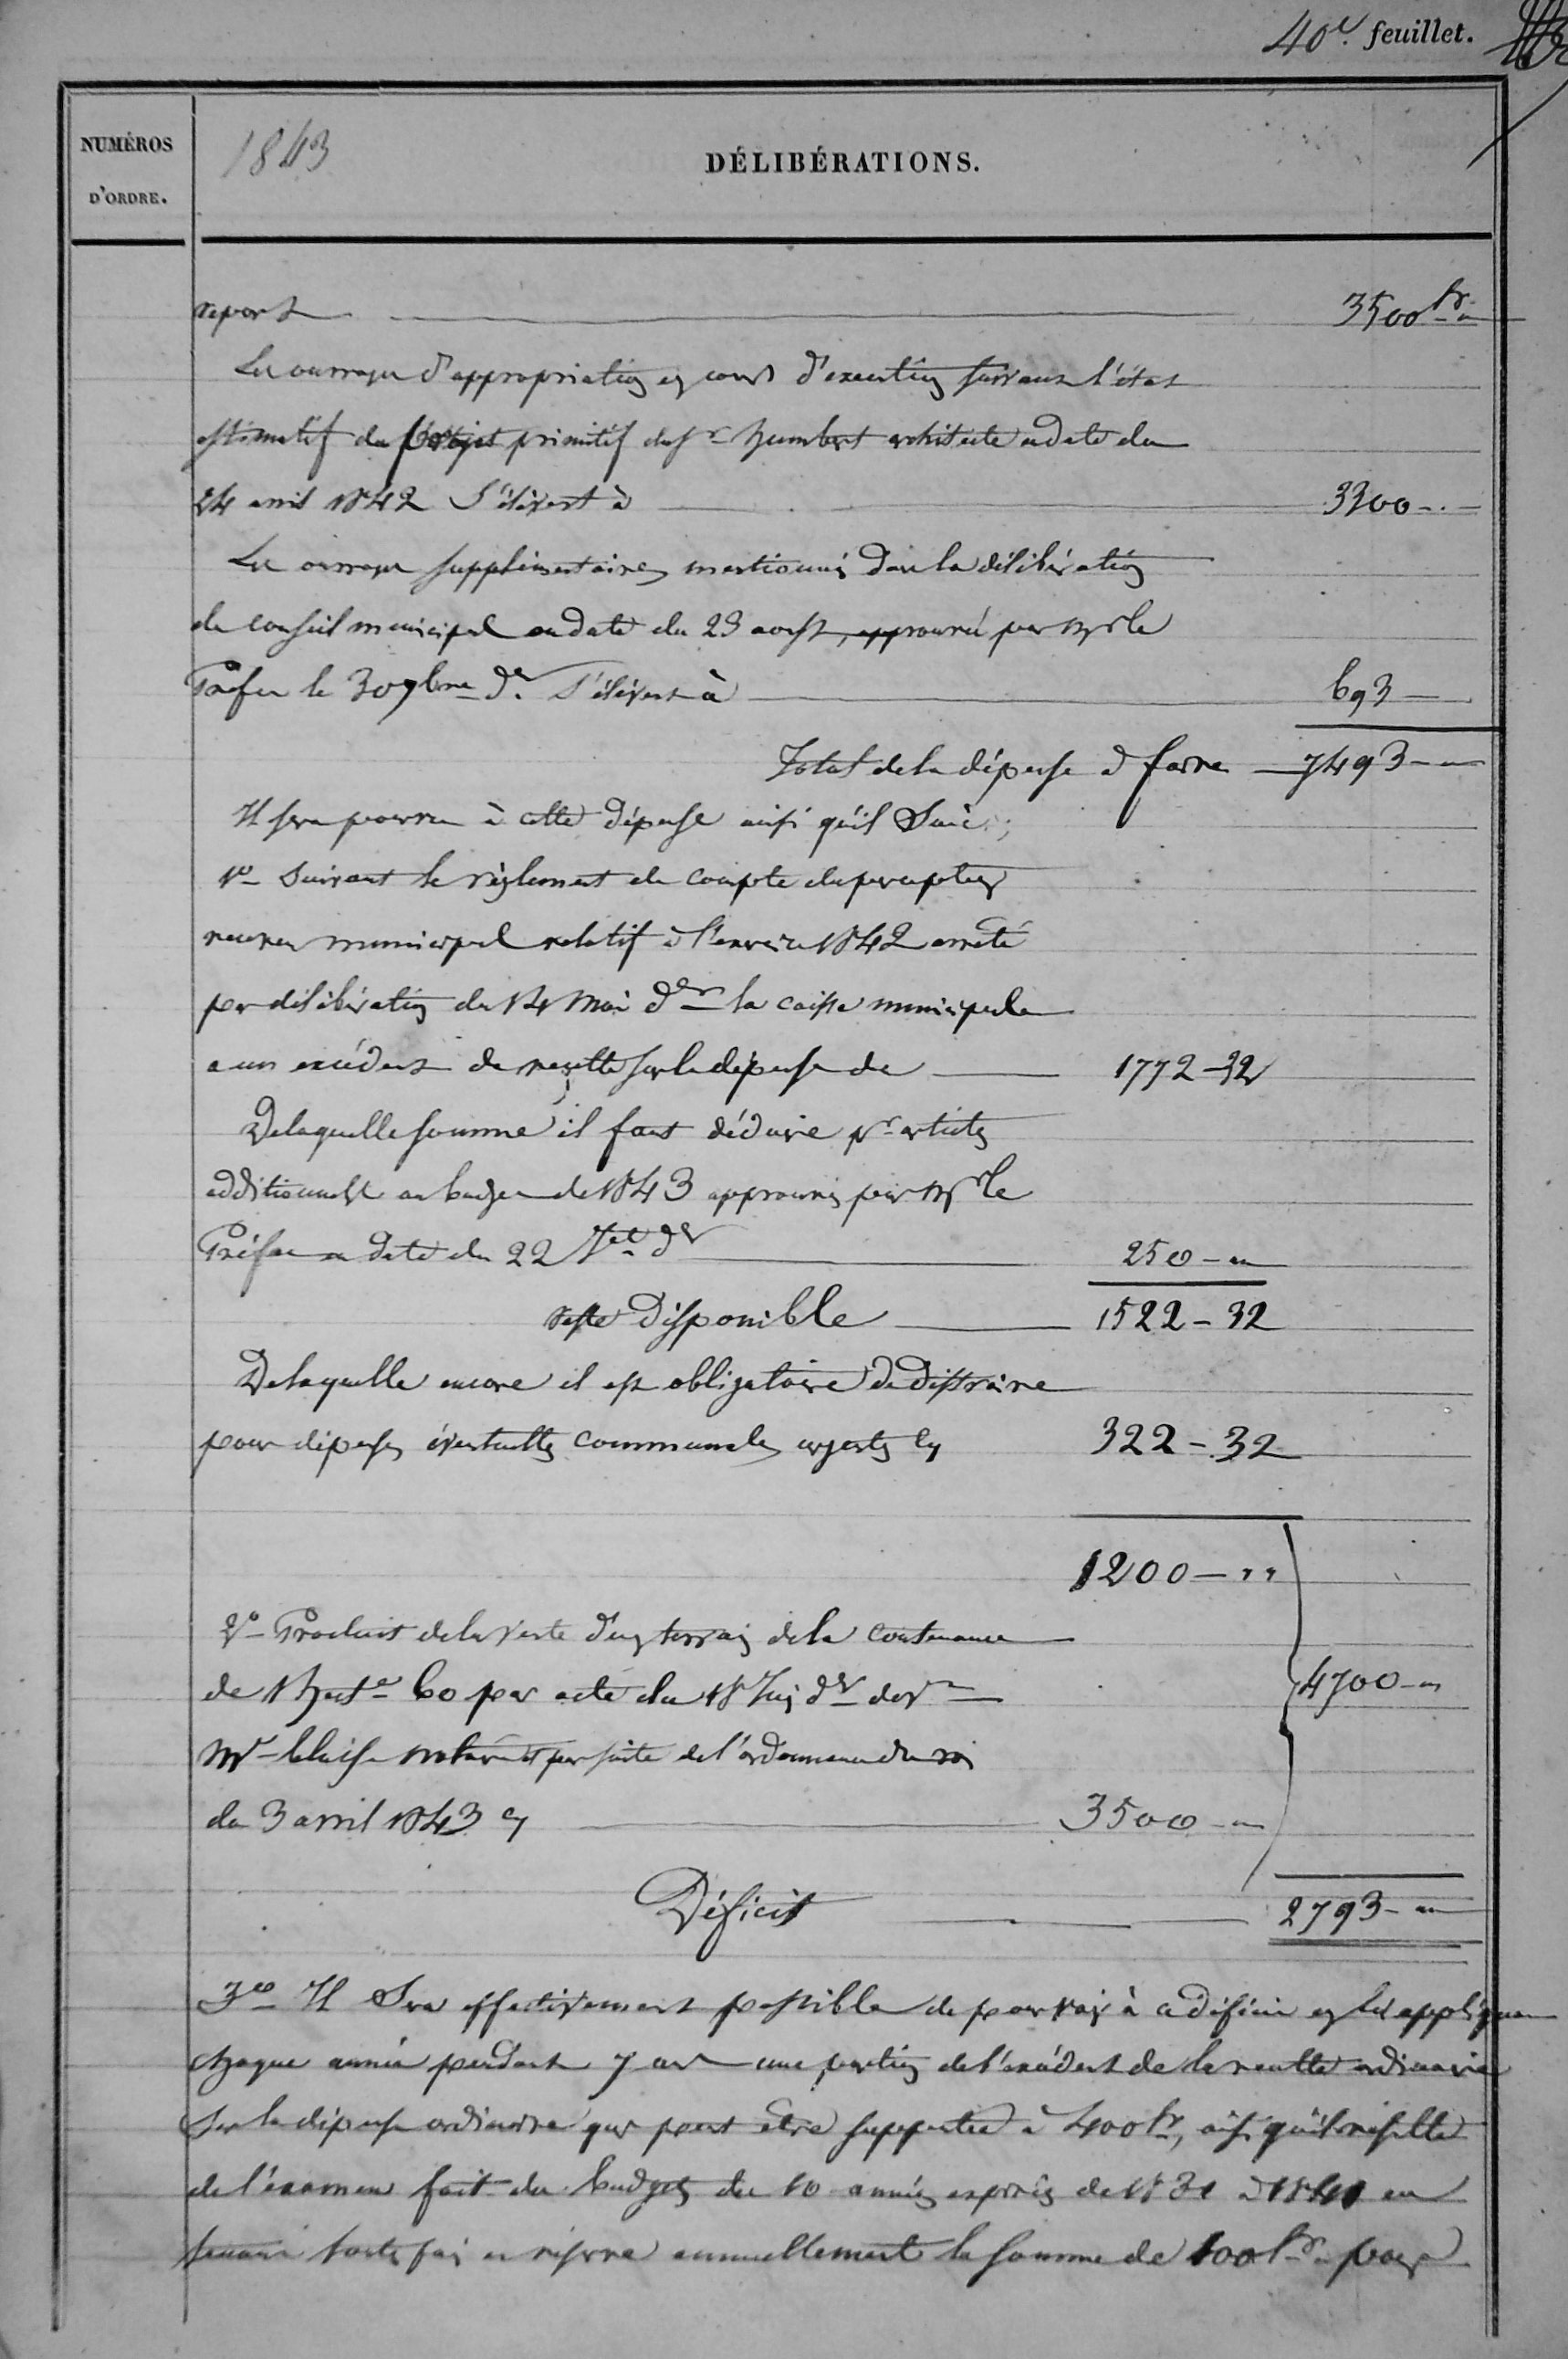 40e. feuillet.
NUMÉROS
D'ORDRE.
1843
DÉLIBÉRATIONS.
report 3500 fr. "
Les ouvrages d'appropriation en cours d'exécution suivant l'état
estimatif du projet primitif du Sr Humbert architecte en date du
24 avril 1842 s'élèvent à 3300 - "
Les ouvrages supplémentaires mentionnés dans la délibération
du conseil municipal en date du 23 aoust, approuvée par Mr le
Préfet le 30 9bre dr s'élèvent à 693 -
Total de la dépense à faire 7493 - "
Il sera pourvu à cette dépense ainsi qu'il suit ;
1o Suivant le règlement du compte du percepteur
receveur municipal relatif à l'exercice 1842 arrêté
par délibération du 14 Mai dr la caisse municipale
a un excédent de recette sur la dépense de 1772 - 32
De laquelle somme il faut déduire pr articles
additionnels au budget de 1843 approuvés par Mr le
Préfet en date du 22 Jet dr 250 - "
reste Disponible 1522 - 32
De laquelle encore il est obligatoire de distraire
pour dépenses éventuelles communales urgentes cy 322 - 32
1200 - "
2o Produit de la vente d'un terrain de la contenance
de 1 hect. 60 par acte du 18 Juin dr devt 4700 - "
Me notaire et par suite de l'ordonnance du roi
du 3 avril 1843 cy 3500 - "
Déficit 2793 - "
3o Il sera effectivement possible de pourvoir à ce déficit en lui appliquant
chaque année pendant 7 ans une portion de l'excédent de la recette ordinaire
sur la dépense ordinaire qui peut être supputée à 400 fr, ainsi qu'il résulte
de l'examen fait du budgets des 10 années expirées de 1831 à 1841 en
tenant toutefois en réserve annuellement la somme de 100 fr. pour